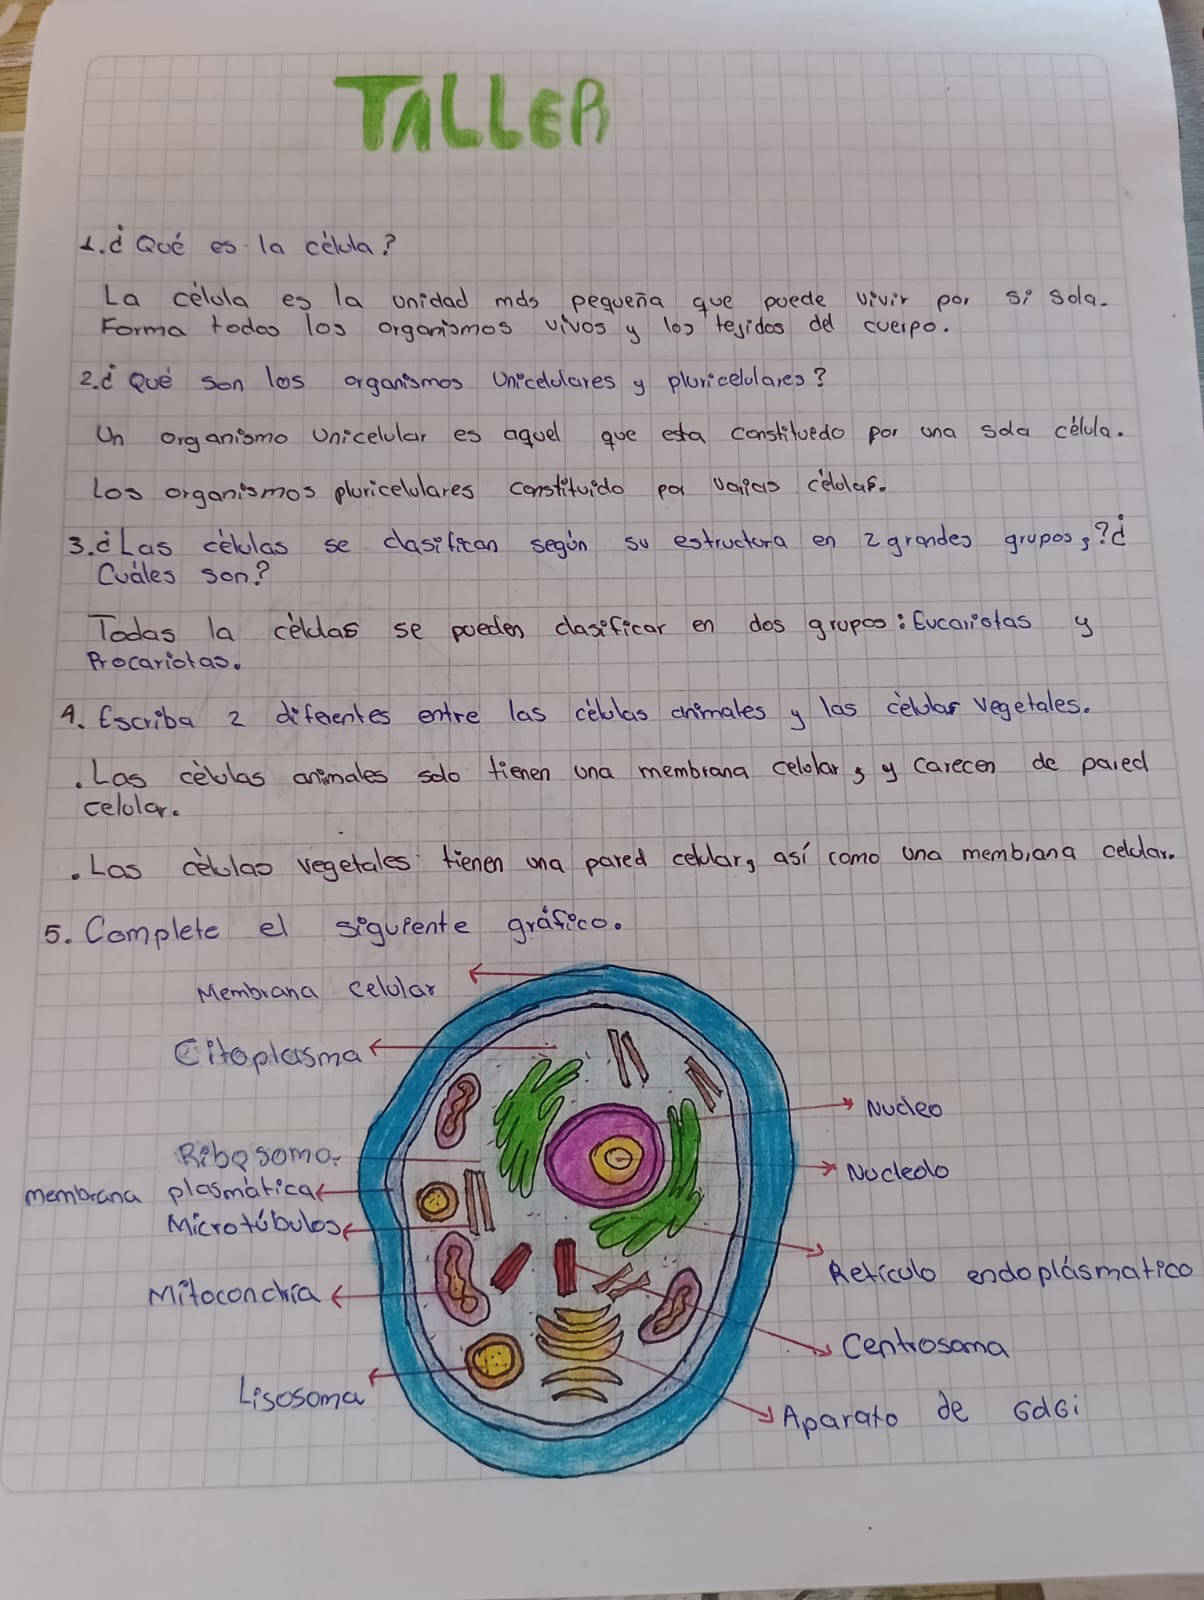 TALLER
1. ¿Qué es la célula?
La célula es la unidad más pequeña que puede vivir por si sola.
Forma todos los organismos vivos y los tejidos del cuerpo.
2. ¿Qué son los organismos Unicelulares y pluricelulares?
Un organismo unicelular es aquel que esta constituedo por una sola célula.
Los organismos pluricelulares constituido por varias células.
3. ¿Las células se clasifican según su estructura en 2 grandes grupos,?¿
Cuáles son?
Todas la células se pueden clasificar en dos grupos: Eucariotas y
Procariotas.
4. Escriba 2 diferentes entre las células animales y las células vegetales.
. Las células animales solo tienen una membrana celular, y carecen de pared
celular.
. Las células vegetales tienen una pared celular, así como una membrana celular.
5. Complete el siguiente gráfico.
Membrana celular
Citoplasma
Nucleo
Ribosoma
Nucleolo
membrana plasmática
Microtúbulos
Retículo endoplásmatico
Mitocondria
Centrosoma
Lisosoma
Aparato de GolGi